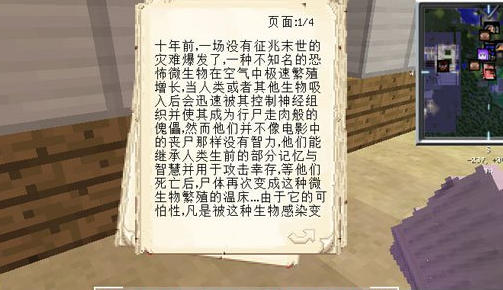 页面:1/4
十年前,一场没有征兆末世的
灾难爆发了,一种不知名的恐
怖微生物在空气中极速繁殖
增长,当人类或者其他生物吸
入后会迅速被其控制神经组
织并使其成为行尸走肉般的
傀儡,然而他们并不像电影中
的丧尸那样没有智力,他们能
继承人类生前的部分记忆与
智慧并用于攻击幸存,等他们
死亡后,尸体再次变成这种微
生物繁殖的温床...由于它的可
怕性,凡是被这种生物感染变
S